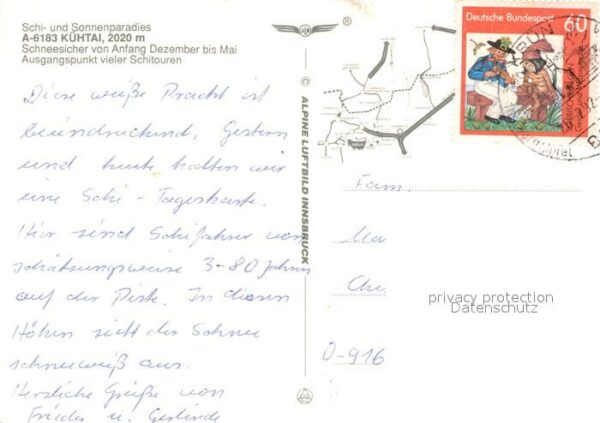 Schi- und Sonnenparadies
A-6183 KÜHTAI, 2020 m
Schneesicher von Anfang Dezember bis Mai
Ausgangspunkt vieler Schitouren
Diese weiße Pracht ist
beeindruckend. Gestern
und heute hatten wir
eine Schi-Tageskarte.
Hier sind Schifahrer von
schätzungsweise 3-80 Jahren
auf der Piste. In diesen
Höhen sieht der Schnee
schneeweiß aus.
Herzliche Grüße von
Frieder u. Gerlinde
© ALPINE LUFTBILD INNSBRUCK
Deutsche Bundespost 60
Fam.
O-916
privacy protection
Datenschutz